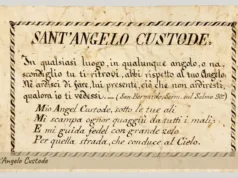 SANT'ANGELO CUSTODE.
In qualsiasi luogo, in qualunque angolo, o na-
scondiglio ta ti ritrovi, abbi rispetto al tuo Angelo.
Nè ardisci di fare, lui presente, ciò che non ardiresti,
qualora io ti vedessi. — (San Bernardo, Serm. sul Salmo 90.)
Mio Angel Custode, sotto le tue ali
Mi scampa ognor quaggiù da tutti i mali;
E mi guida fedel con grande zelo
Per quella strada, che conduce al Cielo.
Angelo Custode